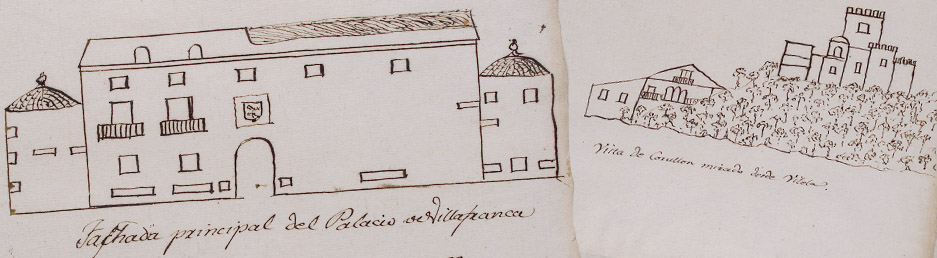 Fachada principal del Palacio de Villafranca
Vista de Corullon mirado desde Vilela.